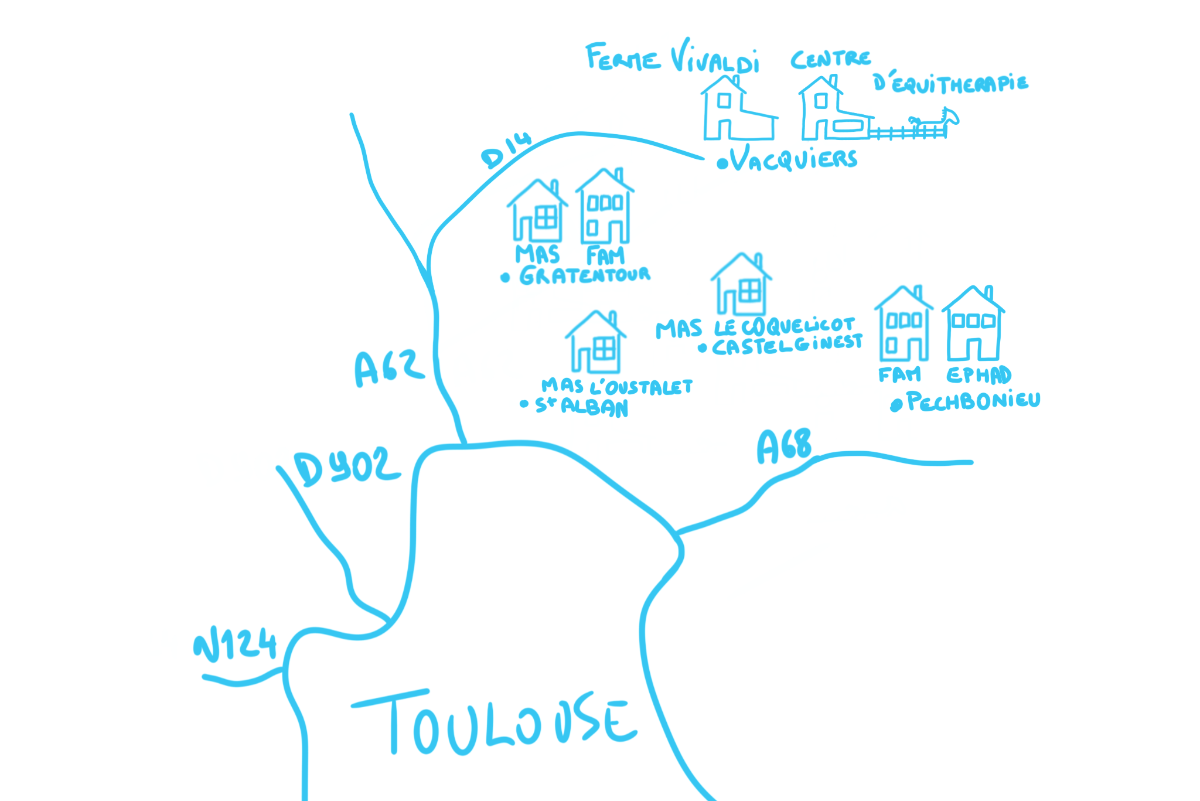 FERME VIVALDI
CENTRE
D'EQUITHERAPIE
D14
•VACQUIERS
MAS FAM
• GRATENTOUR
MAS LE COQUELICOT
• CASTELGINEST
A62
MAS L'OUSTALET
• St ALBAN
FAM EPHAD
•PECHBONIEU
A68
D902
N124
TOULOUSE